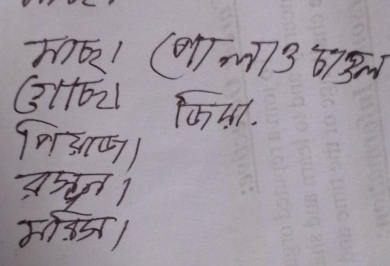 মাছ। পোলাও চাউল
গোছ। জিরা.
পিয়াজ।
রসুন।
মরিস।